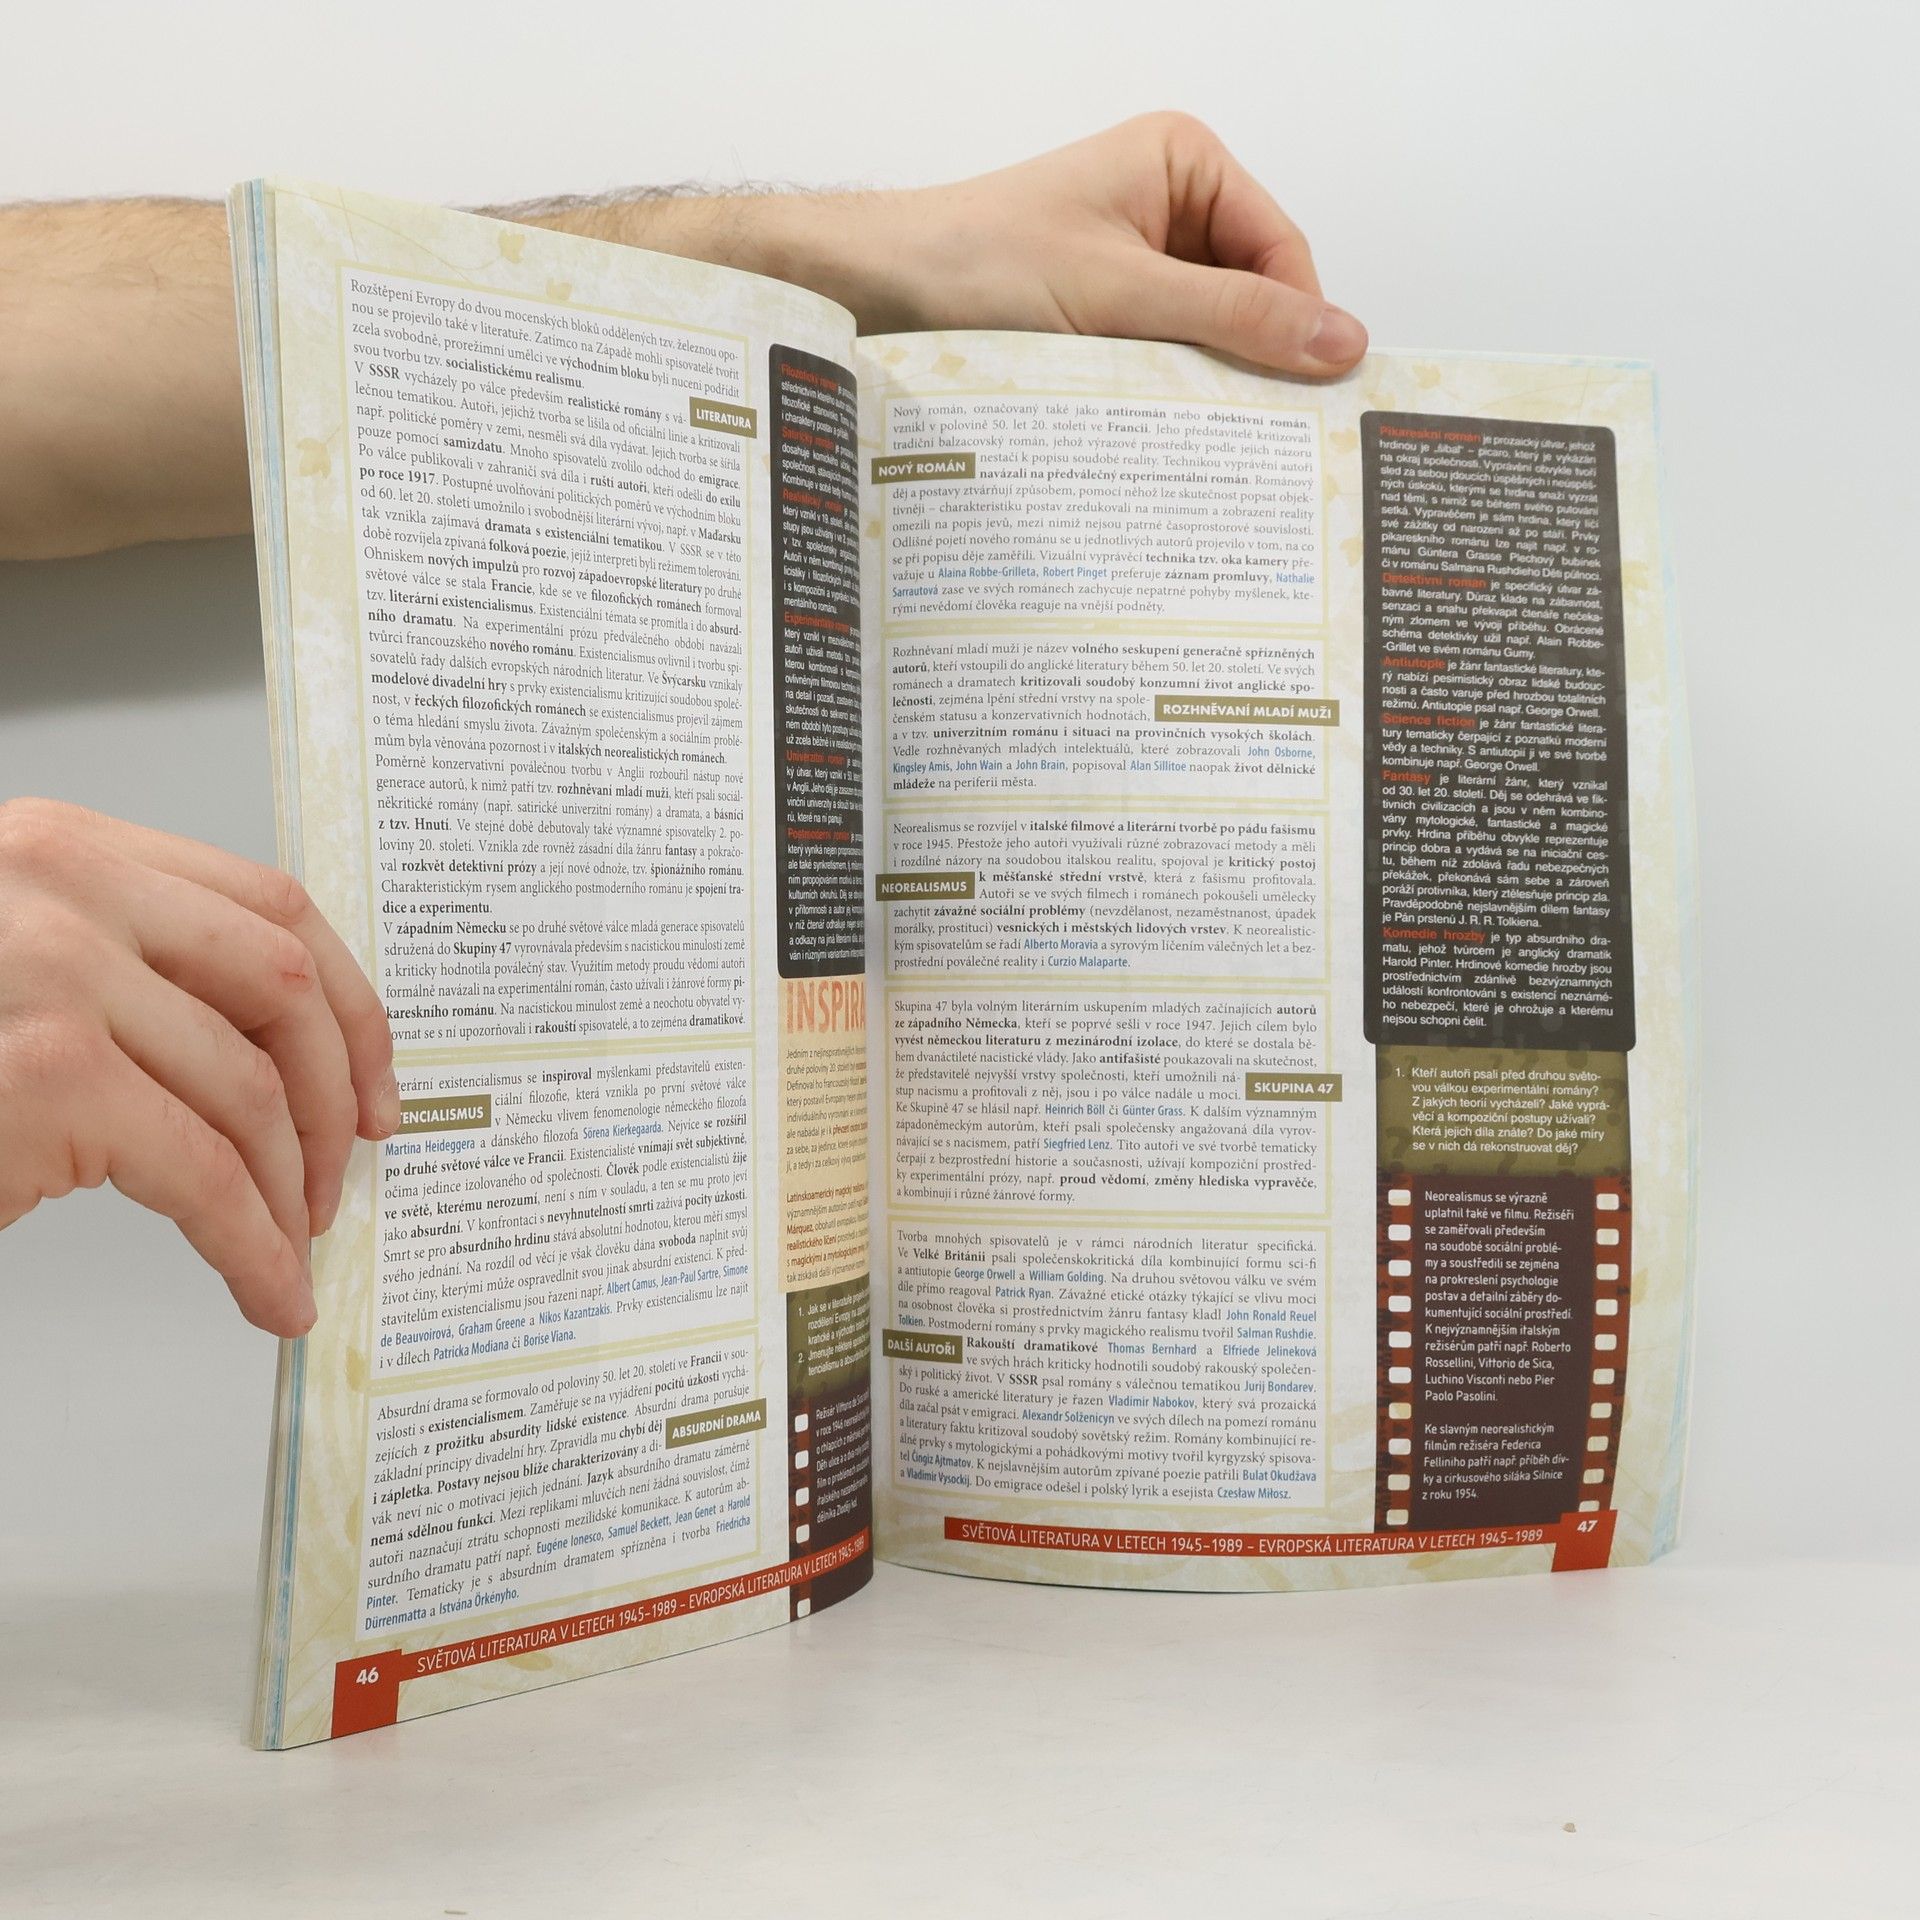 Rozštěpení Evropy do dvou mocenských bloků oddělených tzv. železnou opo-
nou se projevilo také v literatuře. Zatímco na Západě mohli spisovatelé tvořit
zcela svobodně, prorežimní umělci ve východním bloku byli nuceni podřídit
svou tvorbu tzv. socialistickému realismu.
V SSSR vycházely po válce především realistické romány s vá-
LITERATURA
lečnou tematikou. Autoři, jejichž tvorba se lišila od oficiální linie a kritizovali
např. politické poměry v zemi, nesměli svá díla vydávat. Jejich tvorba se šířila
pouze pomocí samizdatu. Mnoho spisovatelů zvolilo odchod do emigrace.
Po válce publikovali v zahraničí svá díla i ruští autoři, kteří odešli do exilu
po roce 1917. Postupné uvolňování politických poměrů ve východním bloku
od 60. let 20. století umožnilo i svobodnější literární vývoj, např. v Maďarsku
tak vznikla zajímavá dramata s existenciální tematikou. V SSSR se v této
době rozvíjela zpívaná folková poezie, jejíž interpreti byli režimem tolerováni.
Ohniskem nových impulzů pro rozvoj západoevropské literatury po druhé
světové válce se stala Francie, kde se ve filozofických románech formoval
tzv. literární existencialismus. Existenciální témata se promítla i do absurd-
ního dramatu. Na experimentální prózu předválečného období navázali
tvůrci francouzského nového románu. Existencialismus ovlivnil i tvorbu spi-
sovatelů řady dalších evropských národních literatur. Ve Švýcarsku vznikaly
modelové divadelní hry s prvky existencialismu kritizující soudobou společ-
nost, v řeckých filozofických románech se existencialismus projevil zájmem
o téma hledání smyslu života. Závažným společenským a sociálním problé-
mům byla věnována pozornost i v italských neorealistických románech.
Poměrně konzervativní poválečnou tvorbu v Anglii rozbouřil nástup nové
generace autorů, k nimž patří tzv. rozhněvaní mladí muži, kteří psali sociál-
někritické romány (např. satirické univerzitní romány) a dramata, a básníci
z tzv. Hnutí. Ve stejné době debutovaly také významné spisovatelky 2. po-
loviny 20. století. Vznikla zde rovněž zásadní díla žánru fantasy a pokračo-
val rozkvět detektivní prózy a její nové odnože, tzv. špionážního románu.
Charakteristickým rysem anglického postmoderního románu je spojení tra-
dice a experimentu.
V západním Německu se po druhé světové válce mladá generace spisovatelů
sdružená do Skupiny 47 vyrovnávala především s nacistickou minulostí země
a kriticky hodnotila poválečný stav. Využitím metody proudu vědomí autoři
formálně navázali na experimentální román, často užívali i žánrové formy pi-
kareskního románu. Na nacistickou minulost země a neochotu obyvatel vy-
ovnat se s ní upozorňovali i rakouští spisovatelé, a to zejména dramatikové.
terární existencialismus se inspiroval myšlenkami představitelů existen-
ciální filozofie, která vznikla po první světové válce
TENCIALISMUS
v Německu vlivem fenomenologie německého filozofa
Martina Heideggera a dánského filozofa Sörena Kierkegaarda. Nejvíce se rozšířil
po druhé světové válce ve Francii. Existencialisté vnímají svět subjektivně,
očima jedince izolovaného od společnosti. Člověk podle existencialistů žije
ve světě, kterému nerozumí, není s ním v souladu, a ten se mu proto jeví
jako absurdní. V konfrontaci s nevyhnutelností smrti zažívá pocity úzkosti.
Smrt se pro absurdního hrdinu stává absolutní hodnotou, kterou měří smysl
svého jednání. Na rozdíl od věcí je však člověku dána svoboda naplnit svůj
život činy, kterými může ospravedlnit svou jinak absurdní existenci. K před-
stavitelům existencialismu jsou řazeni např. Albert Camus, Jean-Paul Sartre, Simone
de Beauvoirová, Graham Greene a Nikos Kazantzakis. Prvky existencialismu lze najít
i v dílech Patricka Modiana či Borise Viana.
Absurdní drama se formovalo od poloviny 50. let 20. století ve Francii v sou-
vislosti s existencialismem. Zaměřuje se na vyjádření pocitů úzkosti vychá-
zejících z prožitku absurdity lidské existence. Absurdní drama porušuje
základní principy divadelní hry. Zpravidla mu chybí děj
ABSURDNÍ DRAMA
i zápletka. Postavy nejsou blíže charakterizovány a di-
vák neví nic o motivaci jejich jednání. Jazyk absurdního dramatu záměrně
nemá sdělnou funkci. Mezi replikami mluvčích není žádná souvislost, čímž
autoři naznačují ztrátu schopnosti mezilidské komunikace. K autorům ab-
surdního dramatu patří např. Eugéne Ionesco, Samuel Beckett, Jean Genet a Harold
Pinter. Tematicky je s absurdním dramatem spřízněna i tvorba Friedricha
Dürrenmatta a Istvána Örkényho.
46
SVĚTOVÁ LITERATURA V LETECH 1945–1989 – EVROPSKÁ LITERATURA V LETECH 1945–1989
INSPIRA
Nový román, označovaný také jako antiromán nebo objektivní román,
vznikl v polovině 50. let 20. století ve Francii. Jeho představitelé kritizovali
tradiční balzacovský román, jehož výrazové prostředky podle jejich názoru
NOVÝ ROMÁN
nestačí k popisu soudobé reality. Technikou vyprávění autoři
navázali na předválečný experimentální román. Románový
děj a postavy ztvárňují způsobem, pomocí něhož lze skutečnost popsat objek-
tivněji – charakteristiku postav zredukovali na minimum a zobrazení reality
omezili na popis jevů, mezi nimiž nejsou patrné časoprostorové souvislosti.
Odlišné pojetí nového románu se u jednotlivých autorů projevilo v tom, na co
se při popisu děje zaměřili. Vizuální vyprávěcí technika tzv. oka kamery pře-
važuje u Alaina Robbe-Grilleta, Robert Pinget preferuje záznam promluvy, Nathalie
Sarrautová zase ve svých románech zachycuje nepatrné pohyby myšlenek, kte-
rými nevědomí člověka reaguje na vnější podněty.
Rozhněvaní mladí muži je název volného seskupení generačně spřízněných
autorů, kteří vstoupili do anglické literatury během 50. let 20. století. Ve svých
románech a dramatech kritizovali soudobý konzumní život anglické spo-
lečnosti, zejména lpění střední vrstvy na spole-
ROZHNĚVANÍ MLADÍ MUŽI
čenském statusu a konzervativních hodnotách,
a v tzv. univerzitním románu i situaci na provinčních vysokých školách.
Vedle rozhněvaných mladých intelektuálů, které zobrazovali John Osborne,
Kingsley Amis, John Wain a John Brain, popisoval Alan Sillitoe naopak život dělnické
mládeže na periferii města.
Neorealismus se rozvíjel v italské filmové a literární tvorbě po pádu fašismu
v roce 1945. Přestože jeho autoři využívali různé zobrazovací metody a měli
i rozdílné názory na soudobou italskou realitu, spojoval je kritický postoj
NEOREALISMUS
k měšťanské střední vrstvě, která z fašismu profitovala.
Autoři se ve svých filmech i románech pokoušeli umělecky
zachytit závažné sociální problémy (nevzdělanost, nezaměstnanost, úpadek
morálky, prostituci) vesnických i městských lidových vrstev. K neorealistic-
kým spisovatelům se řadí Alberto Moravia a syrovým líčením válečných let a bez-
prostřední poválečné reality i Curzio Malaparte.
Skupina 47 byla volným literárním uskupením mladých začínajících autorů
ze západního Německa, kteří se poprvé sešli v roce 1947. Jejich cílem bylo
vyvést německou literaturu z mezinárodní izolace, do které se dostala bě-
hem dvanáctileté nacistické vlády. Jako antifašisté poukazovali na skutečnost,
že představitelé nejvyšší vrstvy společnosti, kteří umožnili ná-
SKUPINA 47
stup nacismu a profitovali z něj, jsou i po válce nadále u moci.
Ke Skupině 47 se hlásil např. Heinrich Böll či Günter Grass. K dalším významným
západoněmeckým autorům, kteří psali společensky angažovaná díla vyrov-
návající se s nacismem, patří Siegfried Lenz. Tito autoři ve své tvorbě tematicky
čerpají z bezprostřední historie a současnosti, užívají kompoziční prostřed-
ky experimentální prózy, např. proud vědomí, změny hlediska vypravěče,
a kombinují i různé žánrové formy.
Tvorba mnohých spisovatelů je v rámci národních literatur specifická.
Ve Velké Británii psali společenskokritická díla kombinující formu sci-fi
a antiutopie George Orwell a William Golding. Na druhou světovou válku ve svém
díle přímo reagoval Patrick Ryan. Závažné etické otázky týkající se vlivu moci
na osobnost člověka si prostřednictvím žánru fantasy kladl John Ronald Reuel
Tolkien. Postmoderní romány s prvky magického realismu tvořil Salman Rushdie.
DALŠÍ AUTOŘI
Rakouští dramatikové Thomas Bernhard a Elfriede Jelineková
ve svých hrách kriticky hodnotili soudobý rakouský společen-
ský i politický život. V SSSR psal romány s válečnou tematikou Jurij Bondarev.
Do ruské a americké literatury je řazen Vladimir Nabokov, který svá prozaická
díla začal psát v emigraci. Alexandr Solženicyn ve svých dílech na pomezí románu
a literatury faktu kritizoval soudobý sovětský režim. Romány kombinující re-
álné prvky s mytologickými a pohádkovými motivy tvořil kyrgyzský spisova-
tel Čingiz Ajtmatov. K nejslavnějším autorům zpívané poezie patřili Bulat Okudžava
a Vladimir Vysockij. Do emigrace odešel i polský lyrik a esejista Czesław Miłosz.
Pikareskní román je prozaický útvar, jehož
hrdinou je „šibal“ – picaro, který je vykázán
na okraj společnosti. Vyprávění obvykle tvoří
sled za sebou jdoucích úspěšných i neúspěš-
ných úskoků, kterými se hrdina snaží vyzrát
nad těmi, s nimiž se během svého putování
setká. Vypravěčem je sám hrdina, který líčí
své zážitky od narození až po stáří. Prvky
pikareskního románu lze najít např. v ro-
mánu Güntera Grasse Plechový bubínek
či v románu Salmana Rushdieho Děti půlnoci.
Detektivní román je specifický útvar zá-
bavné literatury. Důraz klade na zábavnost,
senzaci a snahu překvapit čtenáře nečeka-
ným zlomem ve vývoji příběhu. Obrácené
schéma detektivky užil např. Alain Robbe-
-Grillet ve svém románu Gumy.
Antiutopie je žánr fantastické literatury, kte-
rý nabízí pesimistický obraz lidské budouc-
nosti a často varuje před hrozbou totalitních
režimů. Antiutopie psal např. George Orwell.
Science fiction je žánr fantastické litera-
tury tematicky čerpající z poznatků moderní
vědy a techniky. S antiutopií ji ve své tvorbě
kombinuje např. George Orwell.
Fantasy je literární žánr, který vznikal
od 30. let 20. století. Děj se odehrává ve fik-
tivních civilizacích a jsou v něm kombino-
vány mytologické, fantastické a magické
prvky. Hrdina příběhu obvykle reprezentuje
princip dobra a vydává se na iniciační ces-
tu, během níž zdolává řadu nebezpečných
překážek, překonává sám sebe a zároveň
poráží protivníka, který ztělesňuje princip zla.
Pravděpodobně nejslavnějším dílem fantasy
je Pán prstenů J. R. R. Tolkiena.
Komedie hrozby je typ absurdního dra-
matu, jehož tvůrcem je anglický dramatik
Harold Pinter. Hrdinové komedie hrozby jsou
prostřednictvím zdánlivě bezvýznamných
událostí konfrontováni s existencí neznámé-
ho nebezpečí, které je ohrožuje a kterému
nejsou schopni čelit.
1. Kteří autoři psali před druhou světo-
vou válkou experimentální romány?
Z jakých teorií vycházeli? Jaké vyprá-
věcí a kompoziční postupy užívali?
Která jejich díla znáte? Do jaké míry
se v nich dá rekonstruovat děj?
Neorealismus se výrazně
uplatnil také ve filmu. Režiséři
se zaměřovali především
na soudobé sociální problé-
my a soustředili se zejména
na prokreslení psychologie
postav a detailní záběry do-
kumentující sociální prostředí.
K nejvýznamnějším italským
režisérům patří např. Roberto
Rossellini, Vittorio de Sica,
Luchino Visconti nebo Pier
Paolo Pasolini.
Ke slavným neorealistickým
filmům režiséra Federica
Felliniho patří např. příběh dív-
ky a cirkusového siláka Silnice
z roku 1954.
SVĚTOVÁ LITERATURA V LETECH 1945–1989 – EVROPSKÁ LITERATURA V LETECH 1945–1989
47